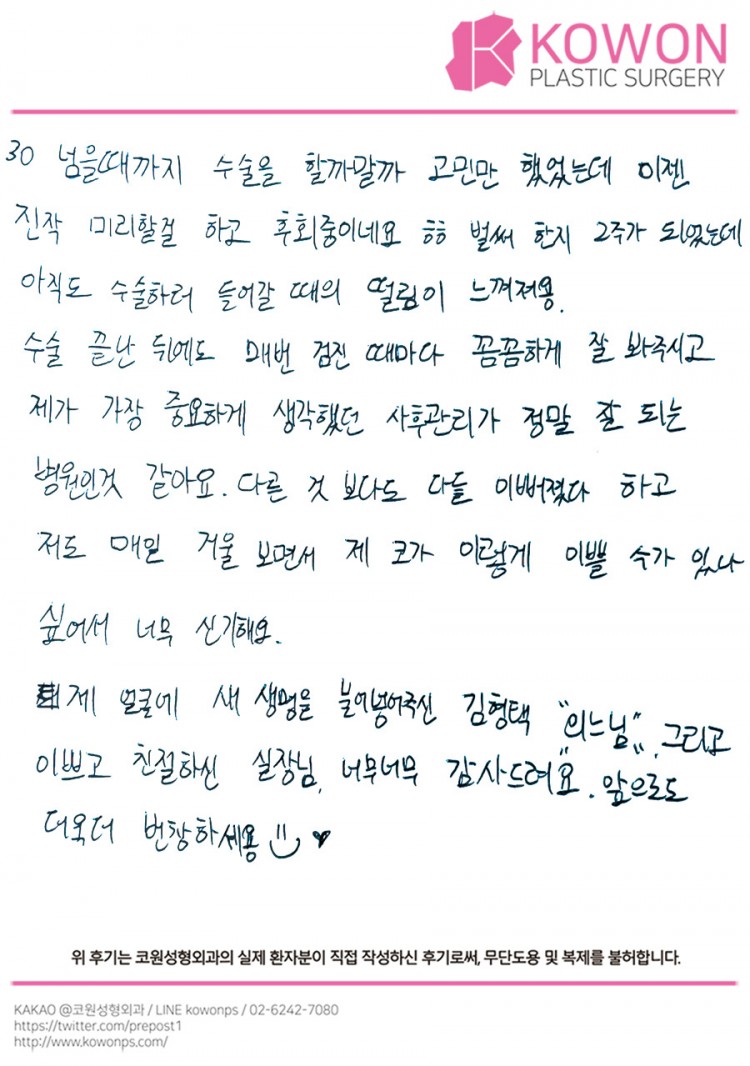 KOWON
PLASTIC SURGERY
30 넘을때까지 수술을 할까말까 고민만 했었는데 이젠
진작 미리할걸 하고 후회중이네요 ㅎㅎ 벌써 한지 2주가 되었는데
아직도 수술하러 들어갈 때의 떨림이 느껴져용.
수술 끝난 뒤에도 매번 검진 때마다 꼼꼼하게 잘 봐주시고
제가 가장 중요하게 생각했던 사후관리가 정말 잘 되는
병원인것 같아요. 다른 것 보다도 다들 이뻐졌다 하고
저도 매일 거울 보면서 제 코가 이렇게 이쁠 수가 있나
싶어서 너무 신기해요.
제 얼굴에 새 생명을 불어넣어주신 김형택 "의느님", 그리고
이쁘고 친절하신 실장님, 너무너무 감사드려요. 앞으로도
더욱더 번창하세용 ♥
위 후기는 코원성형외과의 실제 환자분이 직접 작성하신 후기로써, 무단도용 및 복제를 불허합니다.
KAKAO @코원성형외과 / LINE kowonps / 02-6242-7080
https://twitter.com/prepost1
http://www.kowonps.com/